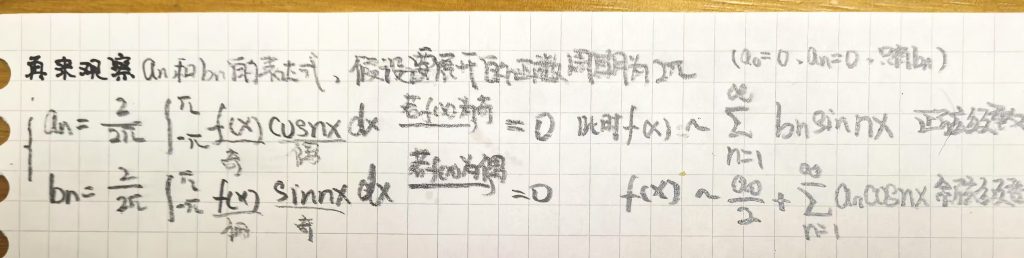 再来观察an和bn的表达式,假设要展开的函数周期为2π (a₀=0、an=0、只有bn)
an = 2/2π ∫_{-π}^{π} f(x) cosnx dx 若f(x)为奇 = 0 此时f(x) ~ ∑_{n=1}^{∞} bn sin nx 正弦级数
奇 偶
bn = 2/2π ∫_{-π}^{π} f(x) sinnx dx 若f(x)为偶 = 0 f(x) ~ a₀/2 + ∑_{n=1}^{∞} an cosnx 余弦级数
偶 奇